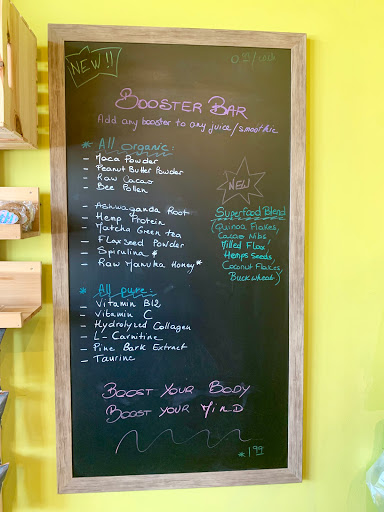 NEW!!
BOOSTER BAR
Add any booster to any juice/smoothie
* All organic:
- Maca Powder
- Peanut Butter Powder
- Raw Cacao
- Bee Pollen
- Ashwaganda Root
- Hemp Protein
- Matcha Green tea
- Flaxseed Powder
- Spirulina *
- Raw Manuka Honey*
NEW
Superfood Blend
(Quinoa Flakes,
Cacao Nibs,
Milled Flax,
Hemps Seeds
Coconut Flakes,
Buckwheat)
* All pure:
- Vitamin B12
- Vitamin C
- Hydrolyzed Collagen
- L-Carnitine
- Pine Bark Extract
- Taurine
BOOST YOUR BODY
BOOST YOUR MIND
*1.99